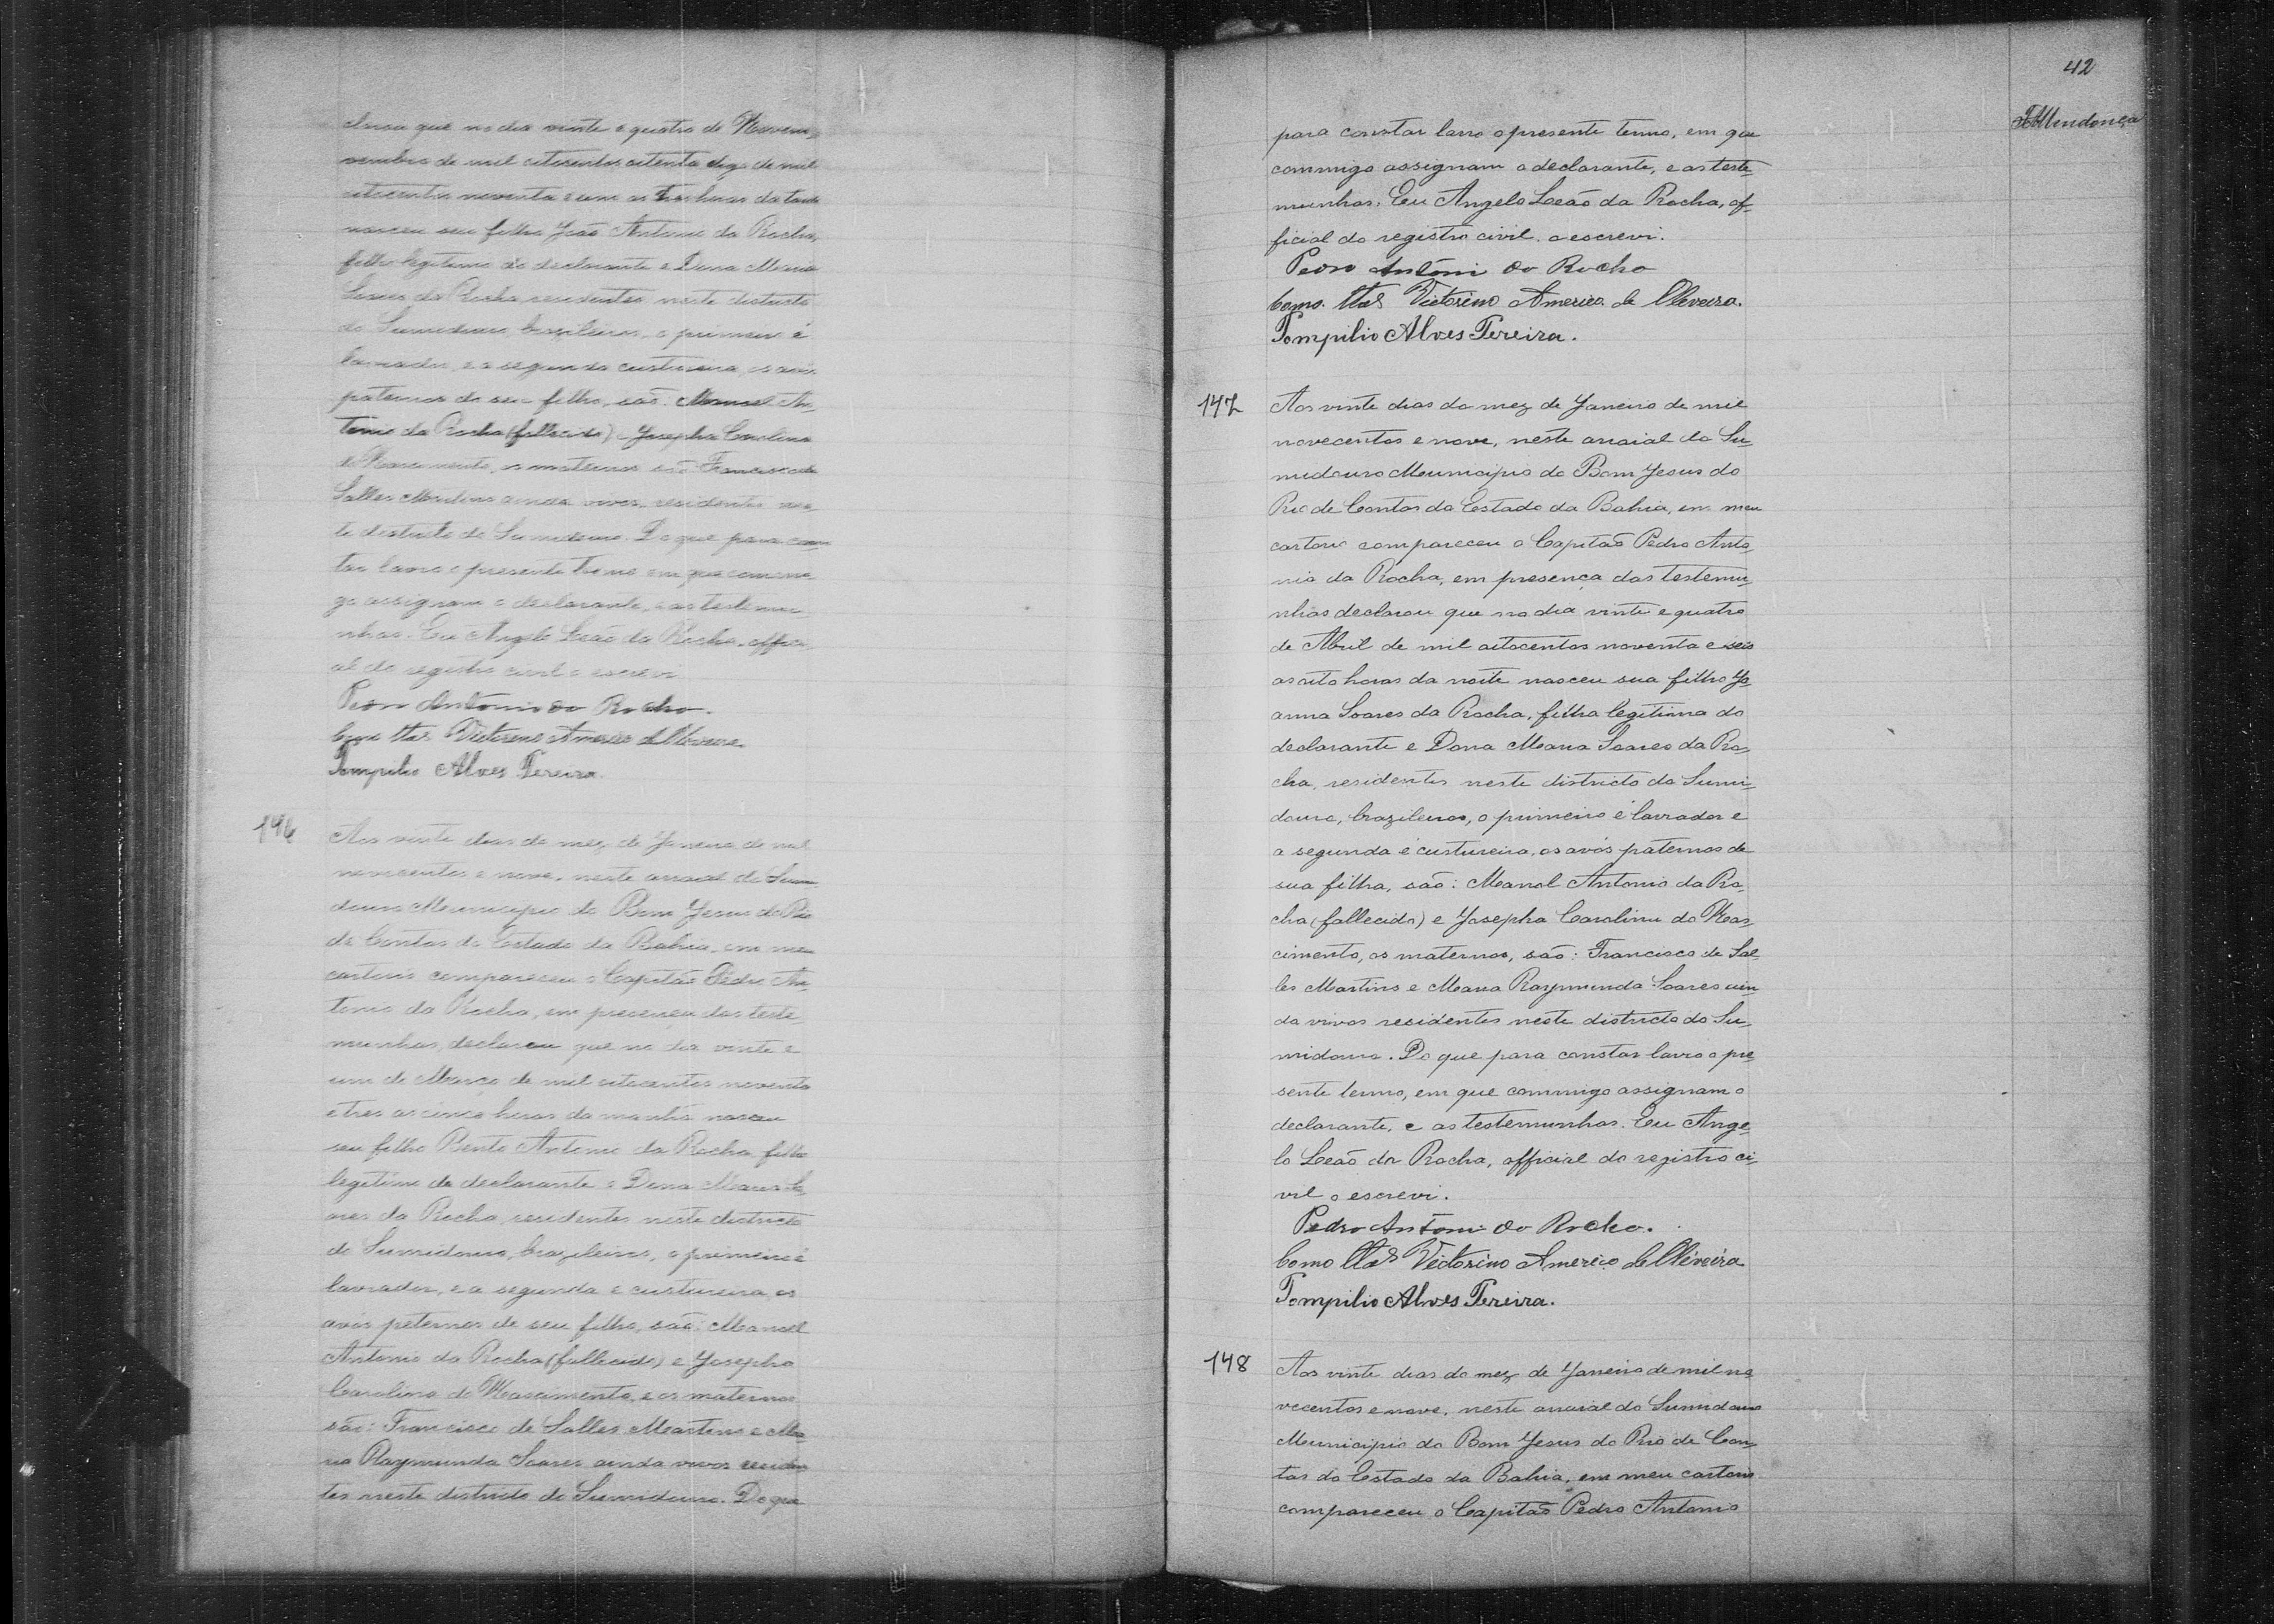 clarou que no dia vinte e quatro de Novem-
vembro de mil oitocentos oitenta digo de mil
oitocentos noventa e um as tres horas da tarde
nasceu seu filho João Antonio da Rocha,
filho legitimo do declarante e Dona Maria
Soares da Rocha, residentes neste districto
do Sumidouro, brazileiros, o primeiro é
lavrador, e a segunda custureira, os avós
paternos do seu filho, são: Manoel An-
tonio da Rocha (fallecido) e Josepha Carolina
do Nascimento, os maternos são Francisco de
Salles Martins ainda vivos, residentes nes-
te districto do Sumidouro. Do que para cons-
tar lavro o presente termo em que commi-
go assignam o declarante, e as testemu-
nhas. Eu Angelo Leão da Rocha, offici-
al do registro civil o escrevi
Pedro Antonio da Rocha.
Como ttas Victorino Americo de Oliveira.
Pompilio Alves Pereira.
146
Aos vinte dias do mez de Janeiro de mil
novecentos e nove, neste arraial do Sumi-
douro Municipio do Bom Jesus do Rio
de Contas do Estado da Bahia, em meu
cartorio compareceu o Capitão Pedro An-
tonio da Rocha, em presença das teste-
munhas, declarou que no dia vinte e
um de Março de mil oitocentos noventa
e tres as cinco horas da manhã nasceu
seu filho Bento Antonio da Rocha, filho
legitimo do declarante e Dona Maria So-
ares da Rocha, residentes neste districto
do Sumidouro, brazileiros, o primeiro é
lavrador, e a segunda é custureira, os
avós paternos de seu filho, são: Manoel
Antonio da Rocha (fallecido) e Josepha
Carolina do Nascimento, e os maternos
são: Francisco de Salles Martins e Ma-
ria Raymunda Soares ainda vivos residen-
tes neste districto do Sumidouro. Do que
42
Mendonça
para constar lavro o presente termo, em que
commigo assignam o declarante, e as teste-
munhas. Eu Angelo Leão da Rocha, of-
ficial do registro civil. o escrevi.
Pedro Antoni da Rocha
Como ttas Victorino Americo de Oliveira.
Pompilio Alves Pereira.
147
Aos vinte dias do mez de Janeiro de mil
novecentos e nove, neste arraial do Su-
midouro Municipio do Bom Jesus do
Rio de Contas do Estado da Bahia, em meu
cartorio compareceu o Capitão Pedro Anto-
nio da Rocha, em presença das testemu-
nhas declarou que no dia vinte e quatro
de Abril de mil oitocentos noventa e seis
as oito horas da noite nasceu sua filha Jo-
anna Soares da Rocha, filha legitima do
declarante e Dona Maria Soares da Ro-
cha, residentes neste districto do Sumi-
douro, brazileiros, o primeiro é lavrador e
a segunda é custureira, os avós paternos de
sua filha, são: Manoel Antonio da Ro-
cha (fallecido) e Josepha Carolina do Nas-
cimento, os maternos, são: Francisco de Sal-
les Martins e Maria Raymunda Soares ain-
da vivos residentes neste districto do Su-
midouro. Do que para constar lavro o pre-
sente termo, em que commigo assignam o
declarante, e as testemunhas. Eu Ange-
lo Leão da Rocha, official do registro ci-
vil o escrevi.
Pedro Antoni da Rocha.
Como ttas Victorino Americo de Oliveira
Pompilio Alves Pereira.
148
Aos vinte dias do mez de Janeiro de mil no-
vecentos e nove, neste arraial do Sumidouro
Municipio do Bom Jesus do Rio de Con-
tas do Estado da Bahia, em meu cartorio
compareceu o Capitão Pedro Antonio